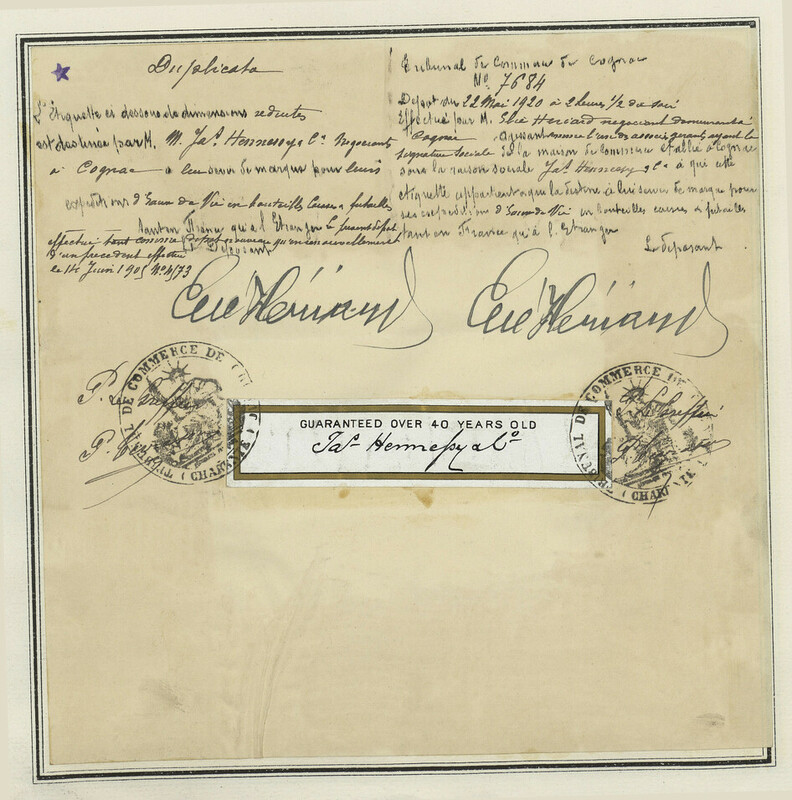 Duplicata
L'Étiquette ci dessous de dimensions réduites
est destinée par M. Jas Hennessy & Co négociants
à Cognac à leur servir de marque pour leurs
expéditions d'Eaux de Vie en bouteilles caisses & futailles
tant en France qu'à l'Etranger Le présent dépôt
effectué tant comme dépôt nouveau qu'en renouvellement
Le Déposant
d'un précédent effectué
le 14 Juin 1905 No 4173
Elie Hériard
Tribunal de Commerce de Cognac
No 7684
Dépôt du 22 Mai 1920 à 2 heures 1/2 du soir
Effectué par M. Elie Hériard négociant demeurant à
Cognac agissant comme l'un des associés gérants ayant la
signature sociale de la maison de commerce établie à Cognac
sous la raison sociale Jas Hennessy & Co à qui cette
étiquette appartient & qui la destine à lui servir de marque pour
ses expéditions d'Eaux de Vie en bouteilles caisses & futailles
tant en France qu'à l'Etranger
Le déposant
Elie Hériard
P. Le Greffier
TRIBUNAL DE COMMERCE DE COGNAC (CHARENTE)
GUARANTEED OVER 40 YEARS OLD
Jas Hennessy & Co
P. Le Greffier
TRIBUNAL DE COMMERCE DE (CHARENTE)